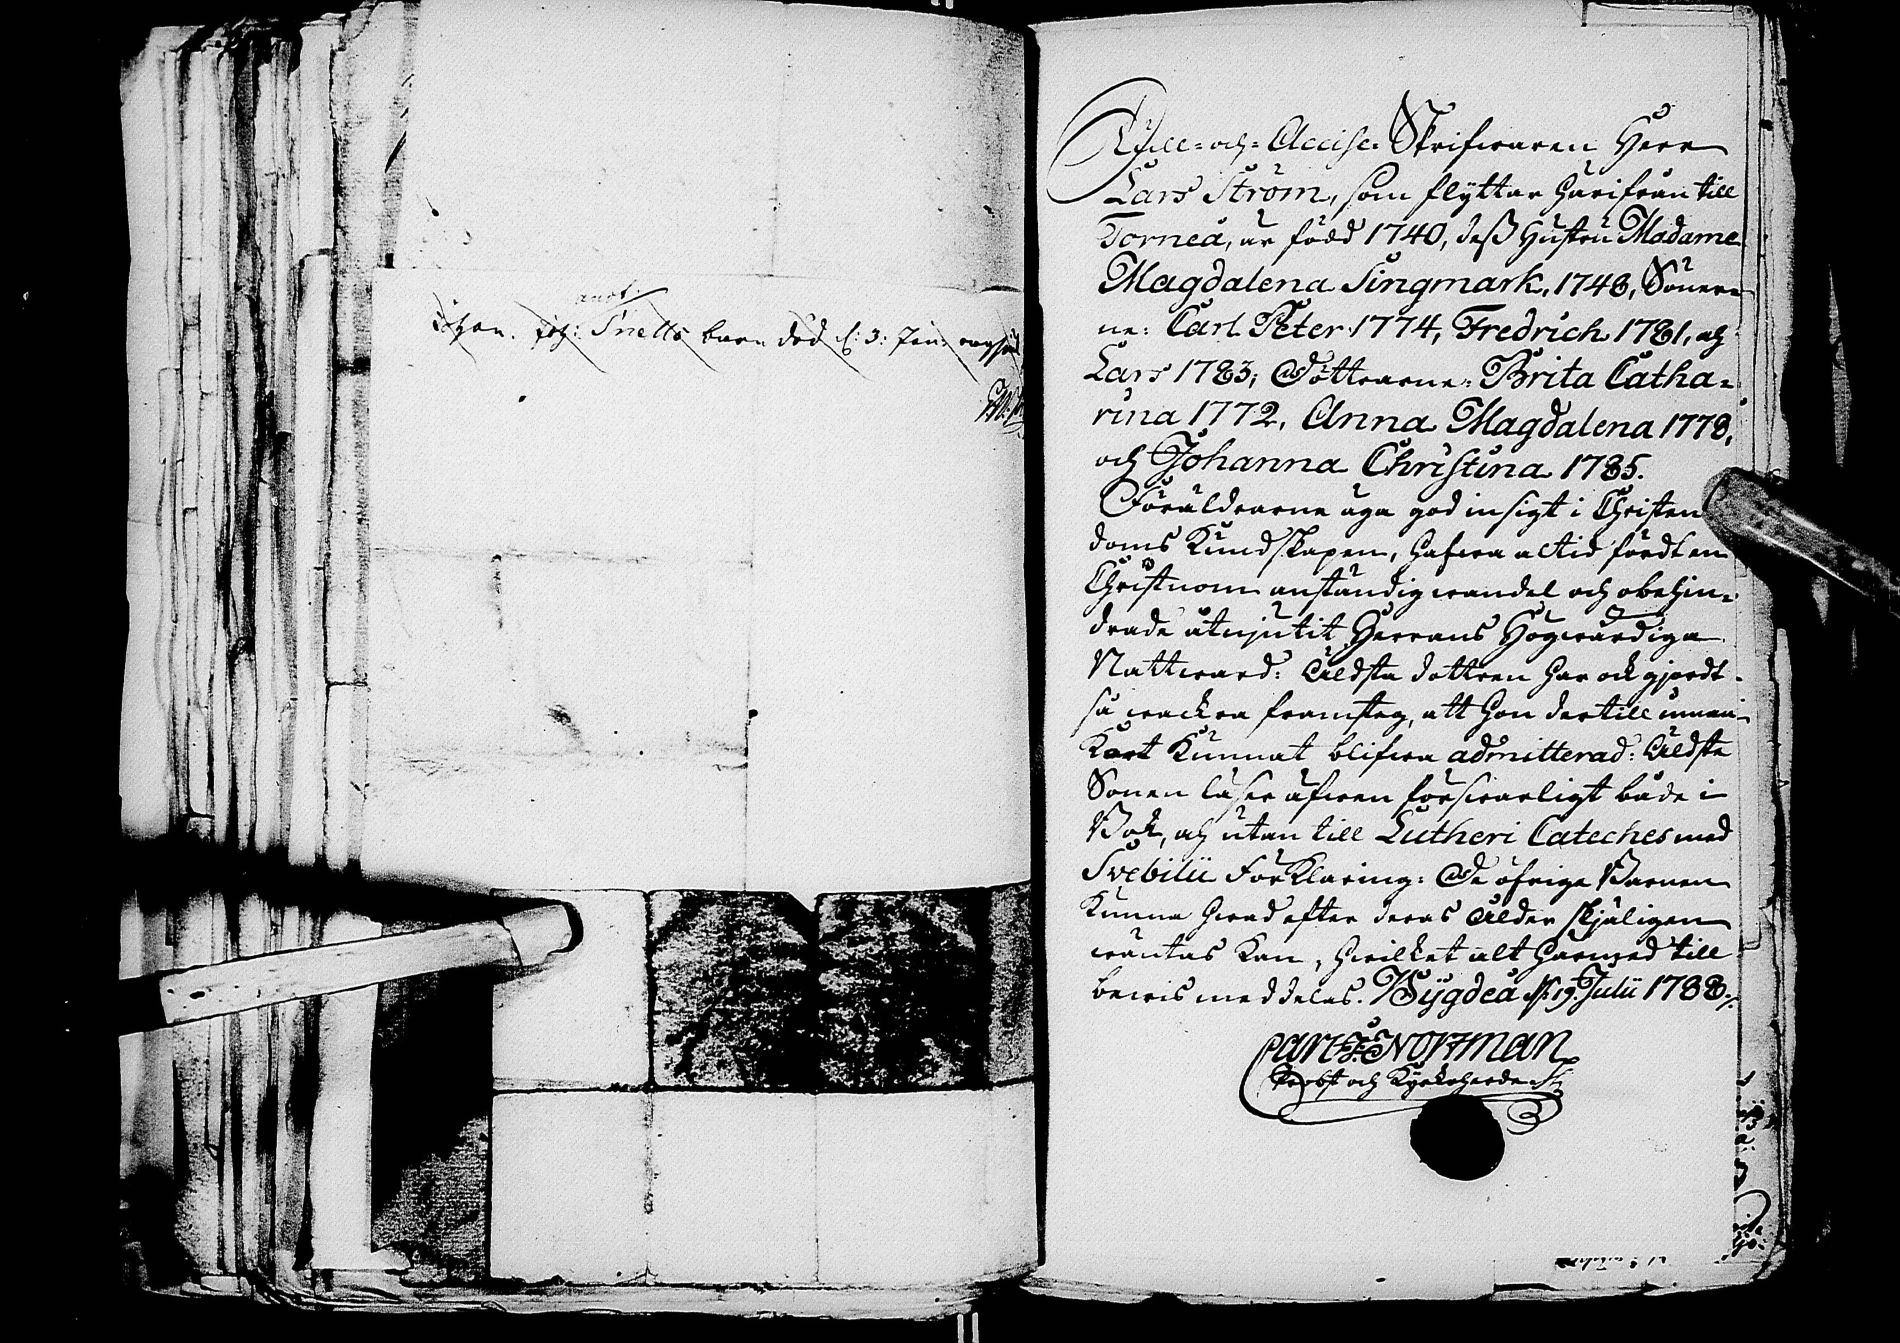 anot:
Joh: Snells barn död d: 3: Jan:
Tull- och Accise-Skrifwaren Herr
Lars Ström, som flyttar härifrån till
Torneå, är född 1740, dess Hustru Madame
Magdalena Singmark, 1748, Söner-
ne: Carl Peter 1774, Fredrich 1781, och
Lars 1783; Döttrarne: Brita Catha-
rina 1772, Anna Magdalena 1778,
och Johanna Christina 1785.
Föräldrarne äga god insigt i Christen
doms Kundskapen, hafwa altid fördt en
Christnom anständig wandel och obehin-
drade åtnjutit Herrans Högwärdiga
Nattward: Äldsta dottren har ock gjordt
så wackra framsteg, att hon dertill innan
Kort Kunnat blifwa admitterad: Äldste
Sonen läser äfwen försvarligt både i
Bok, och utan till Lutheri Cateches med
Svebilii Förklaring: De öfriga Barnen
Kunna hwad efter deras Ålder skjäligen
wäntas kan, hwilket alt härmed till
bewis meddelas. Bygdeå d. 19. Julii 1788.
Carl Nortman
Probst och Kyrkoherde